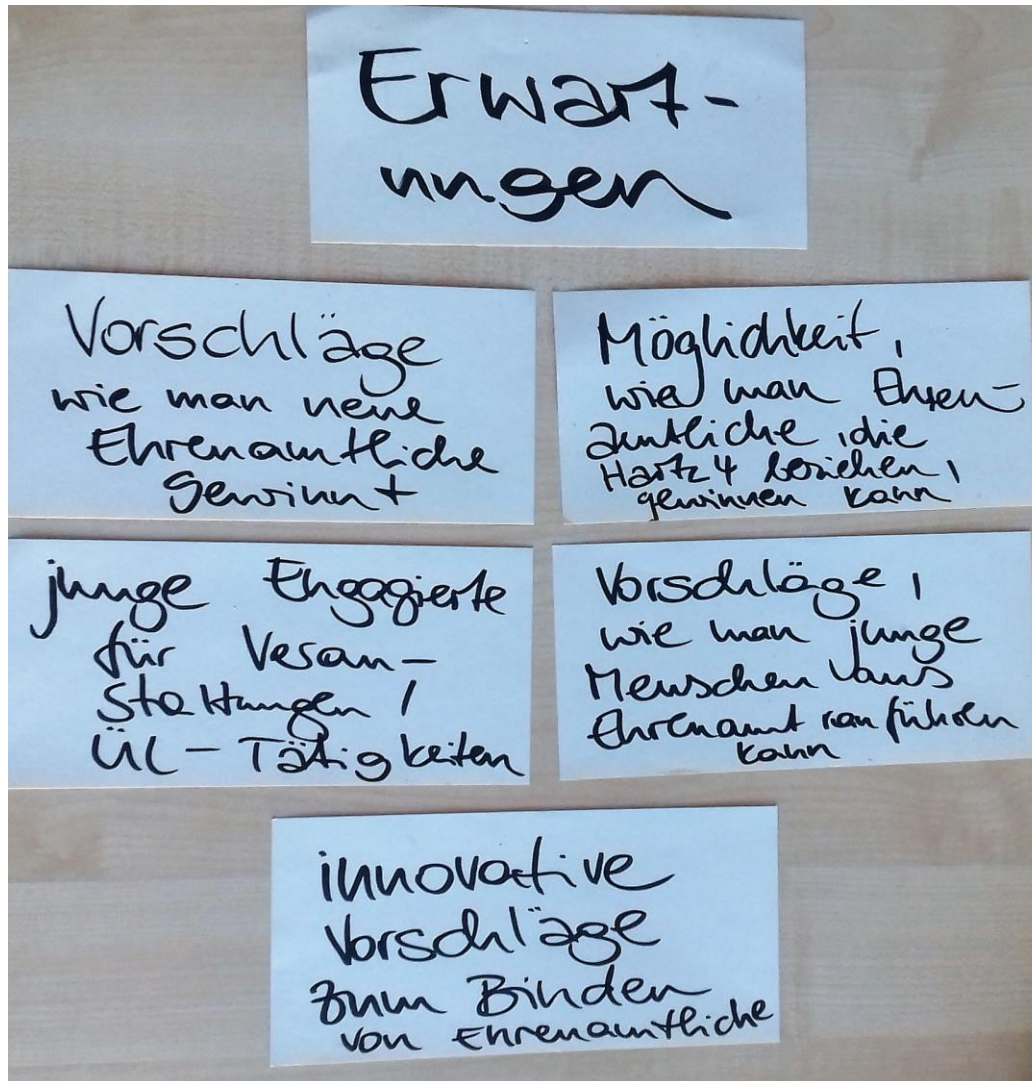 Erwart-
ungen
Vorschläge
wie man neue
Ehrenamtliche
gewinnt
Möglichkeit,
wie man Ehren-
amtliche, die
Hartz 4 beziehen,
gewinnen kann
junge Engagierte
für Veran-
staltungen /
ÜL-Tätigkeiten
Vorschläge,
wie man junge
Menschen ans
Ehrenamt ranführen
kann
innovative
Vorschläge
zum Binden
von Ehrenamtliche